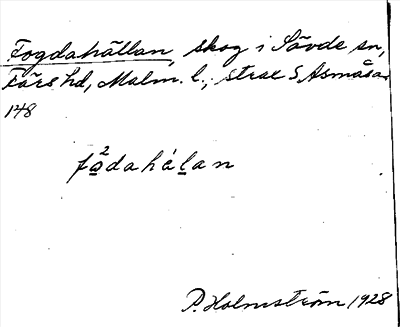 Fogdahällan, skog i Sövde sn,
Färs hd, Malm. l., strax S Åsmåsa
148
fo²dahálan
P. Holmström 1928